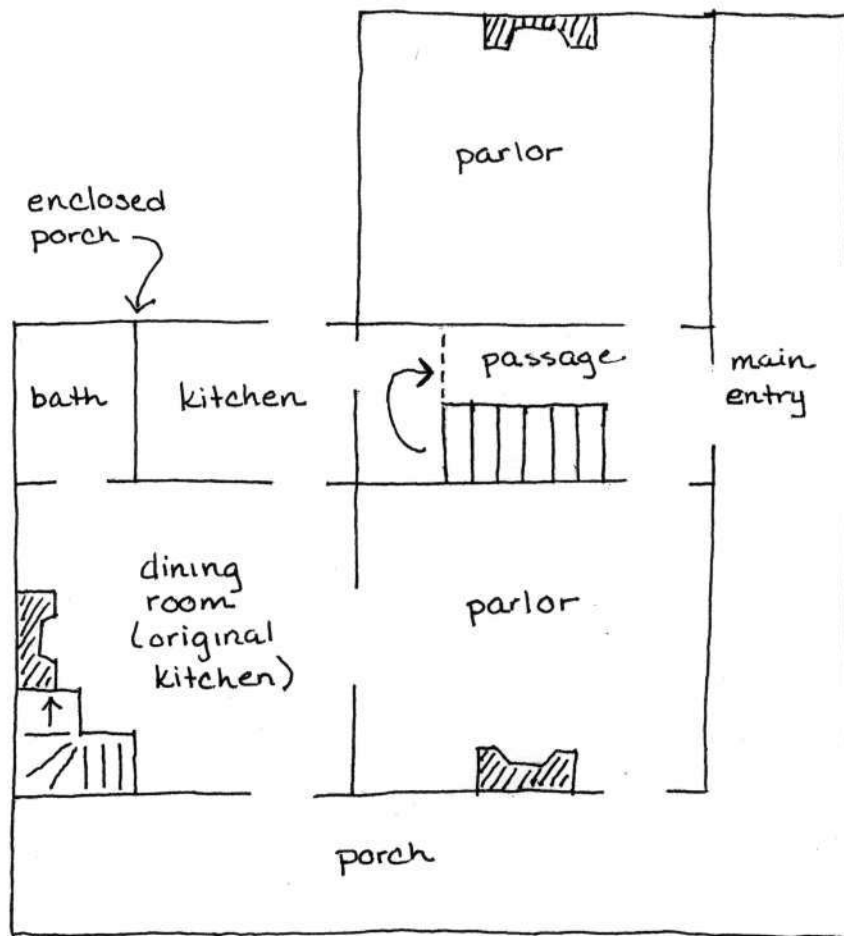 parlor
enclosed
porch
bath
kitchen
passage
main
entry
dining
room
(original
kitchen)
parlor
porch